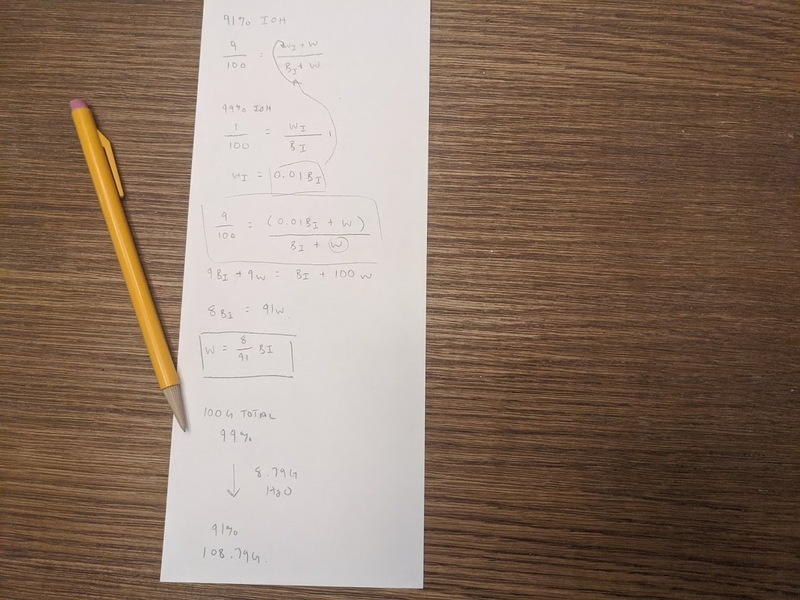 91% IOH
9/100 = (WI + W)/(BI + W)
99% IOH
1/100 = WI/BI
WI = 0.01BI
9/100 = (0.01BI + W)/(BI + W)
9BI + 9W = BI + 100W
8BI = 91W
W = 8/91 BI
100G TOTAL
99%
↓ 8.79G
H2O
91%
108.79G.